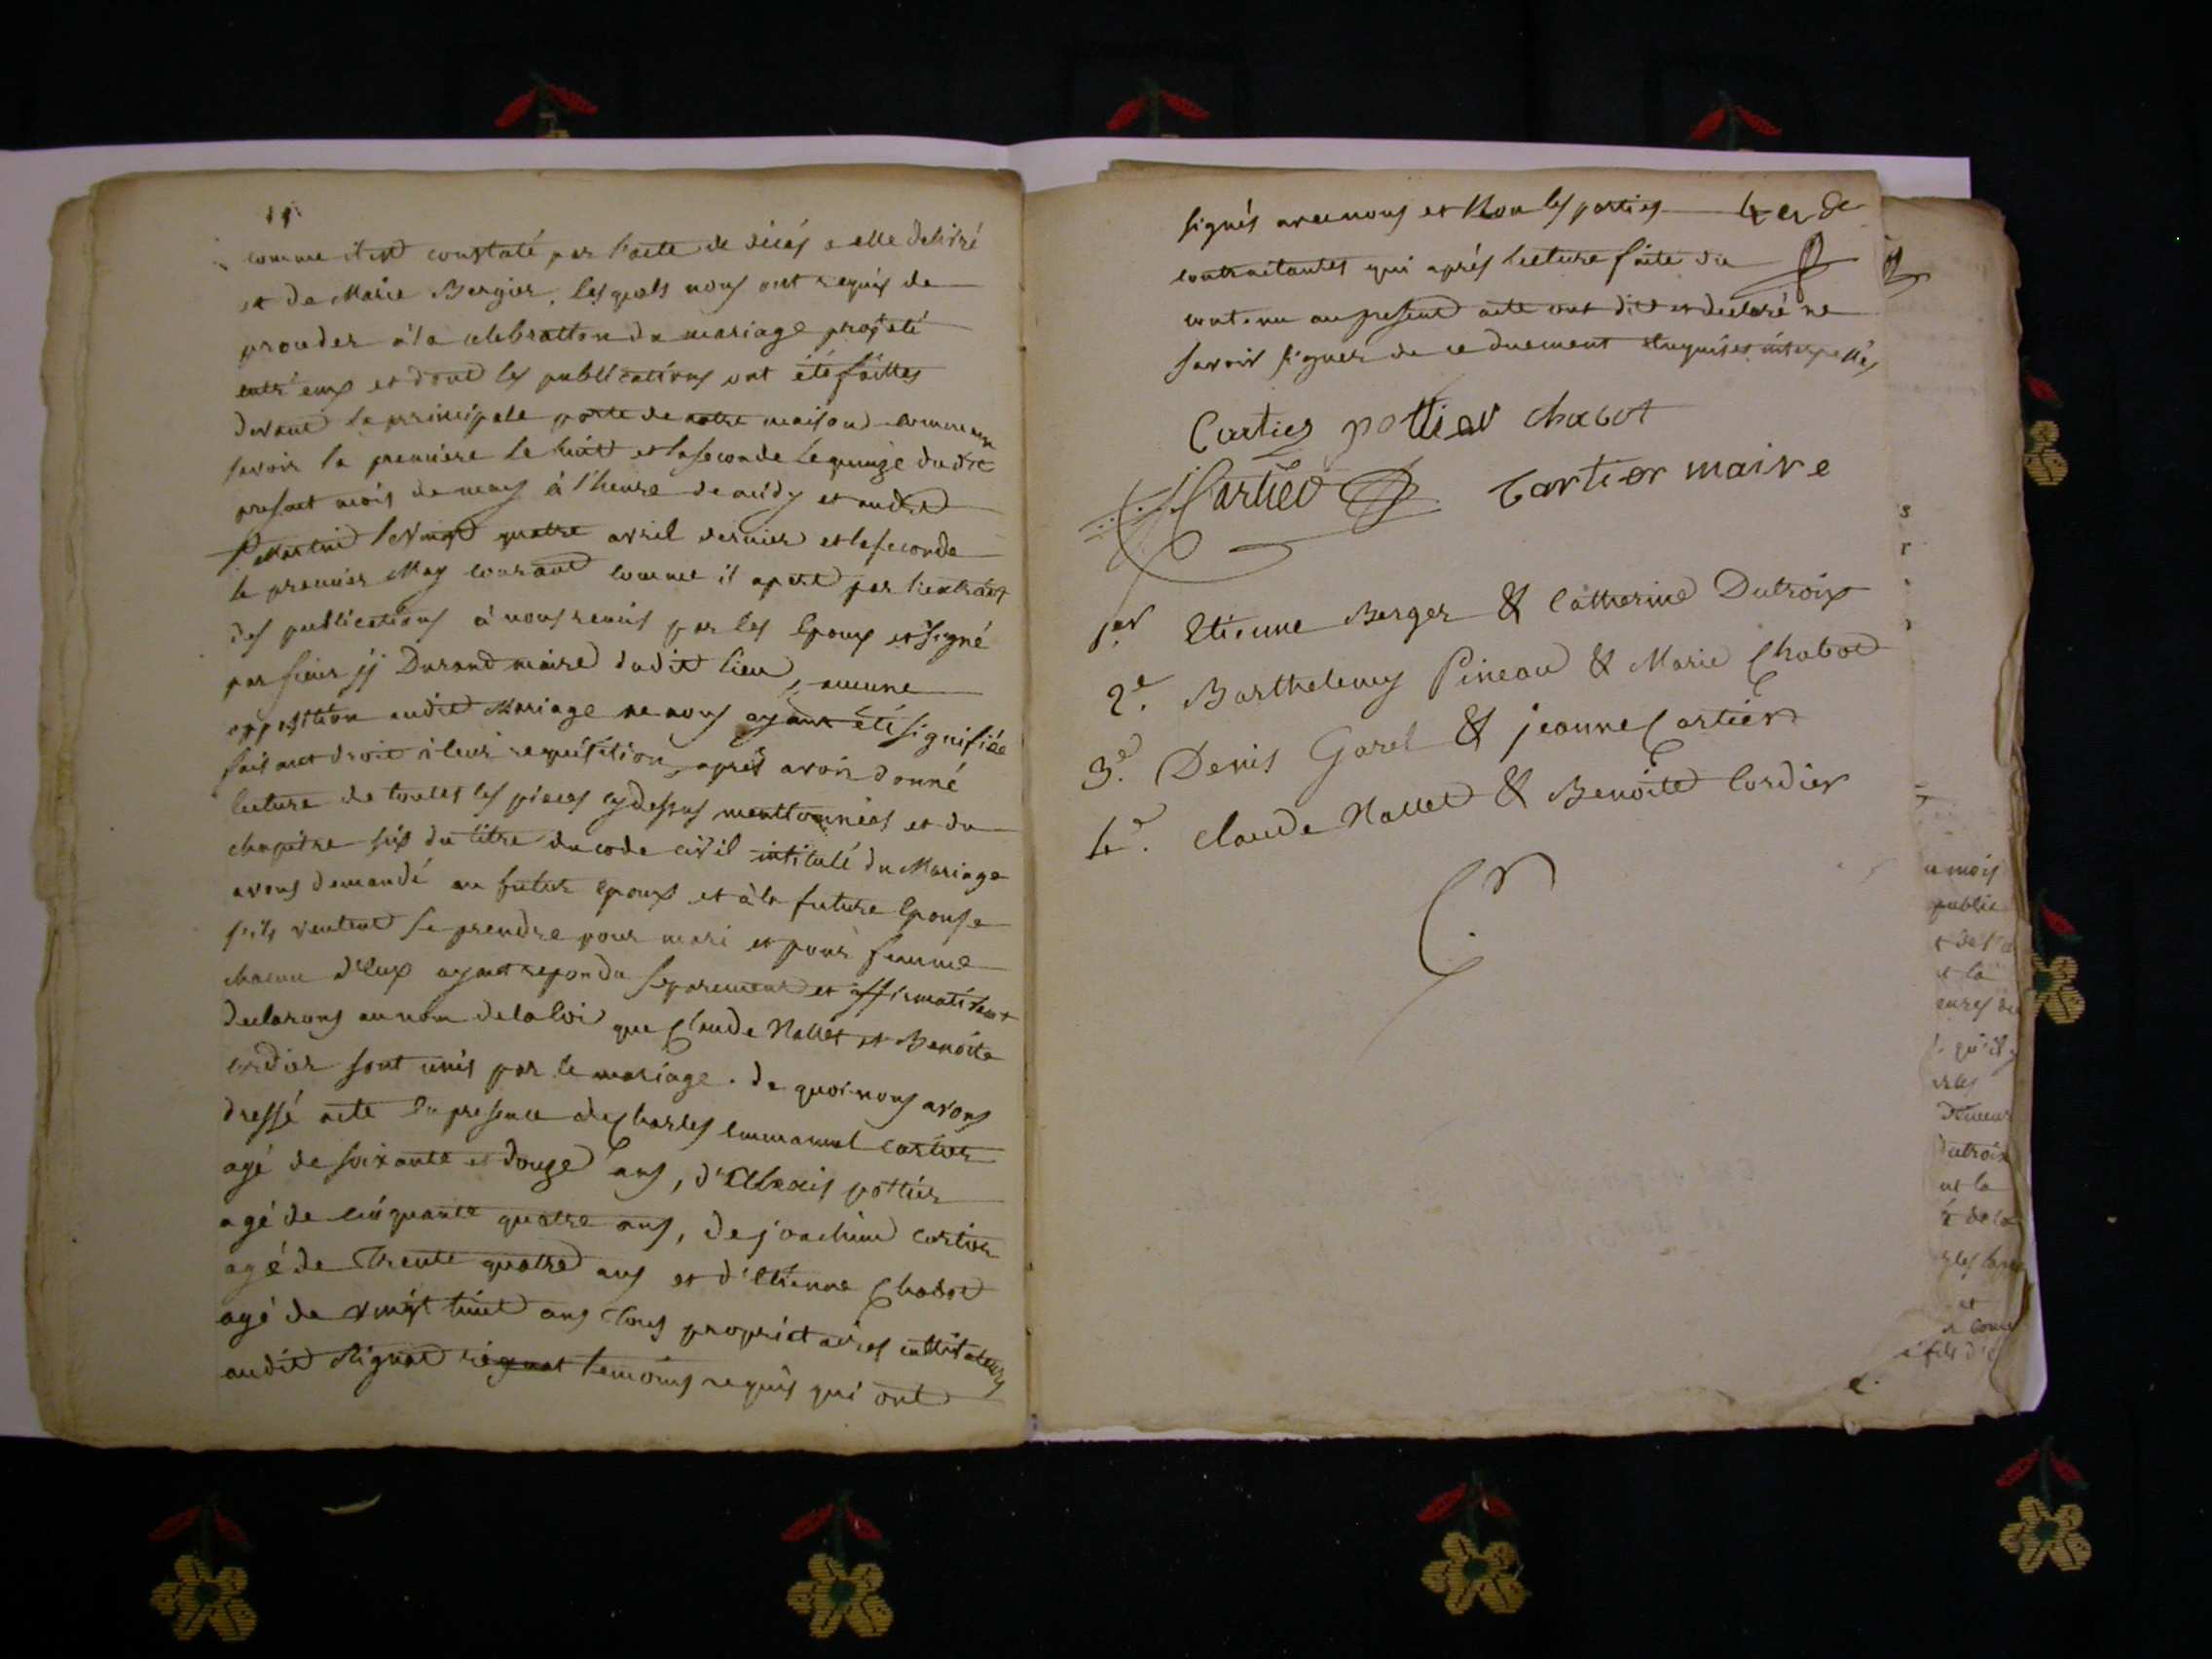 11
comme il est constaté par l'acte de décés a elle delivré
et de Marie Bergier, lesquels nous ont requis de
proceder à la celebration du mariage projeté
entr'eux et dont les publications ont été faittes
devant la principale porte de notre maison commune
savoir la premiere le huit et la seconde le quinze dudit
present mois de may à l'heure de midy et audit
St Martin le vingt quatre avril dernier et la seconde
le premier May courant comme il apert par l'extrait
des publications à nous remis par les Epoux et signé
par sieur jj Durand maire dudit lieu, aucune
opposition audit Mariage ne nous ayant été signifiée
faisant droit à leur requisition, aprés avoir donné
lecture de toutes les pieces cydessus mentionnées et du
chapitre six du titre du code civil intitulé du Mariage
avons demandé au futur epoux et à la future Epouse
s'ils veulent se prendre pour mari et pour femme
chacun d'eux ayant repondu separement et affirmativemt
declarons au nom de la loi que Claude Nallet et Benoite
cordier sont unis par le mariage. de quoi nous avons
dressé acte En presence de Charles Emmanuel Cartier
agé de soixante et douze ans, d'Alexis pottier
agé de cinquante quatre ans, de joachim cartier
agé de Trente quatre ans et d'Etienne Chabot
agé de vingt huit ans tous proprietaires cultivateurs
audit Rignat rignat temoins requis qui ont
signés avec nous et Non les parties
contractantes qui aprés lecture faite du
contenu au present acte ont dit et declaré ne
savoir signer de ce duement Enquis et interpellés
Cartier pottier chabot
Cartier Cartier maire
1er Etienne Berger & Catherine Dutroix
2e. Barthelemy Pineau & Marie Chabot
3e. Denis Garel & jeanne Cartier
4e. Claude Nallet & Benoite Cordier
s
r
u mois
public
et la
qu'il
Dutroix
et la
et
fils d'